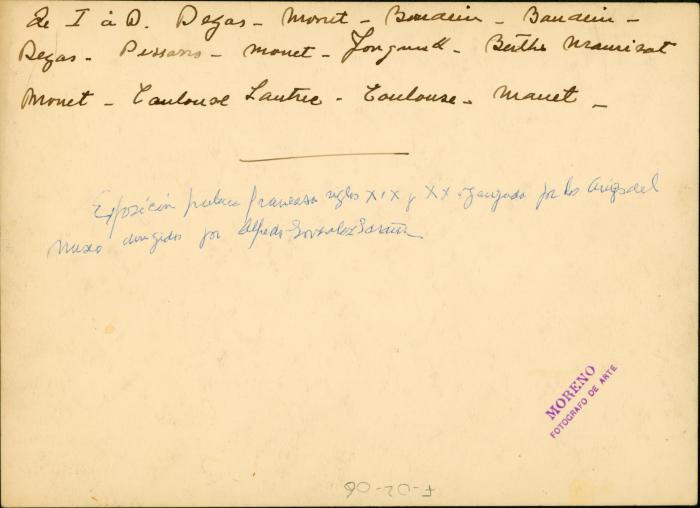 de I à D. Degas - Monet - Boudin - Boudin -
Degas - Pissarro - Monet - Jongkind - Berthe Maurizot
Monet - Toulouse Lautrec - Toulouse - Manet -
Exposición pintura francesa siglos XIX y XX organizada por los Amigos del
Museo dirigidos por Alfredo González Garaño
MORENO
FOTOGRAFO DE ARTE
F-02-06